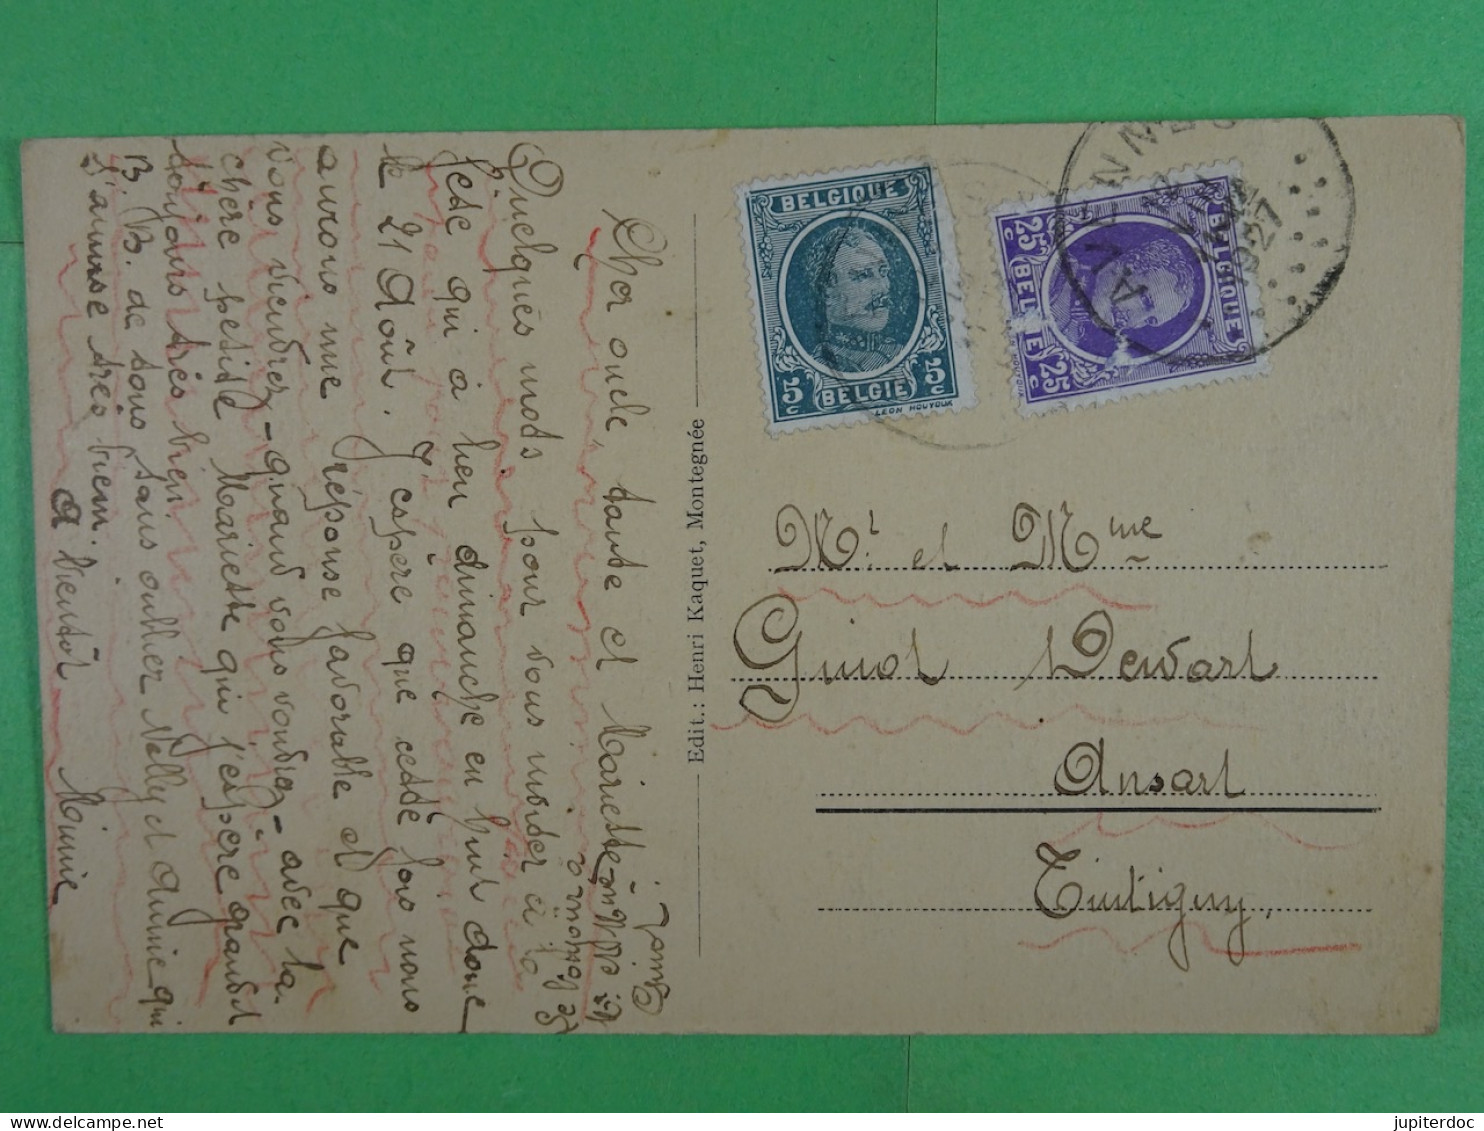 Cher oncle, tante et Mariette,
Quelques mots pour vous inviter à la
fete qui à lieu dimanche en huit donc
le 21 Août. J'espère que cette fois nous
aurons une réponse favorable et que
vous viendrez - quand vous voudrez - avec la
chère petite Mariette qui j'espère grandit
toujours très bien.
B. B. de tous sans oublier Nelly et Annie qui
s'amuse très bien.
A bientôt
Mimie
Edit.: Henri Kaquet, Montegnée
BELGIQUE
5c 5c
BELGIE
LEON HOUYOUX
BELGIQUE
25c 25c
BELGIE
AVENNES
1927
Mr. et Mme
Guiot Dewart
Ansart
Tintigny
jupiterdoc